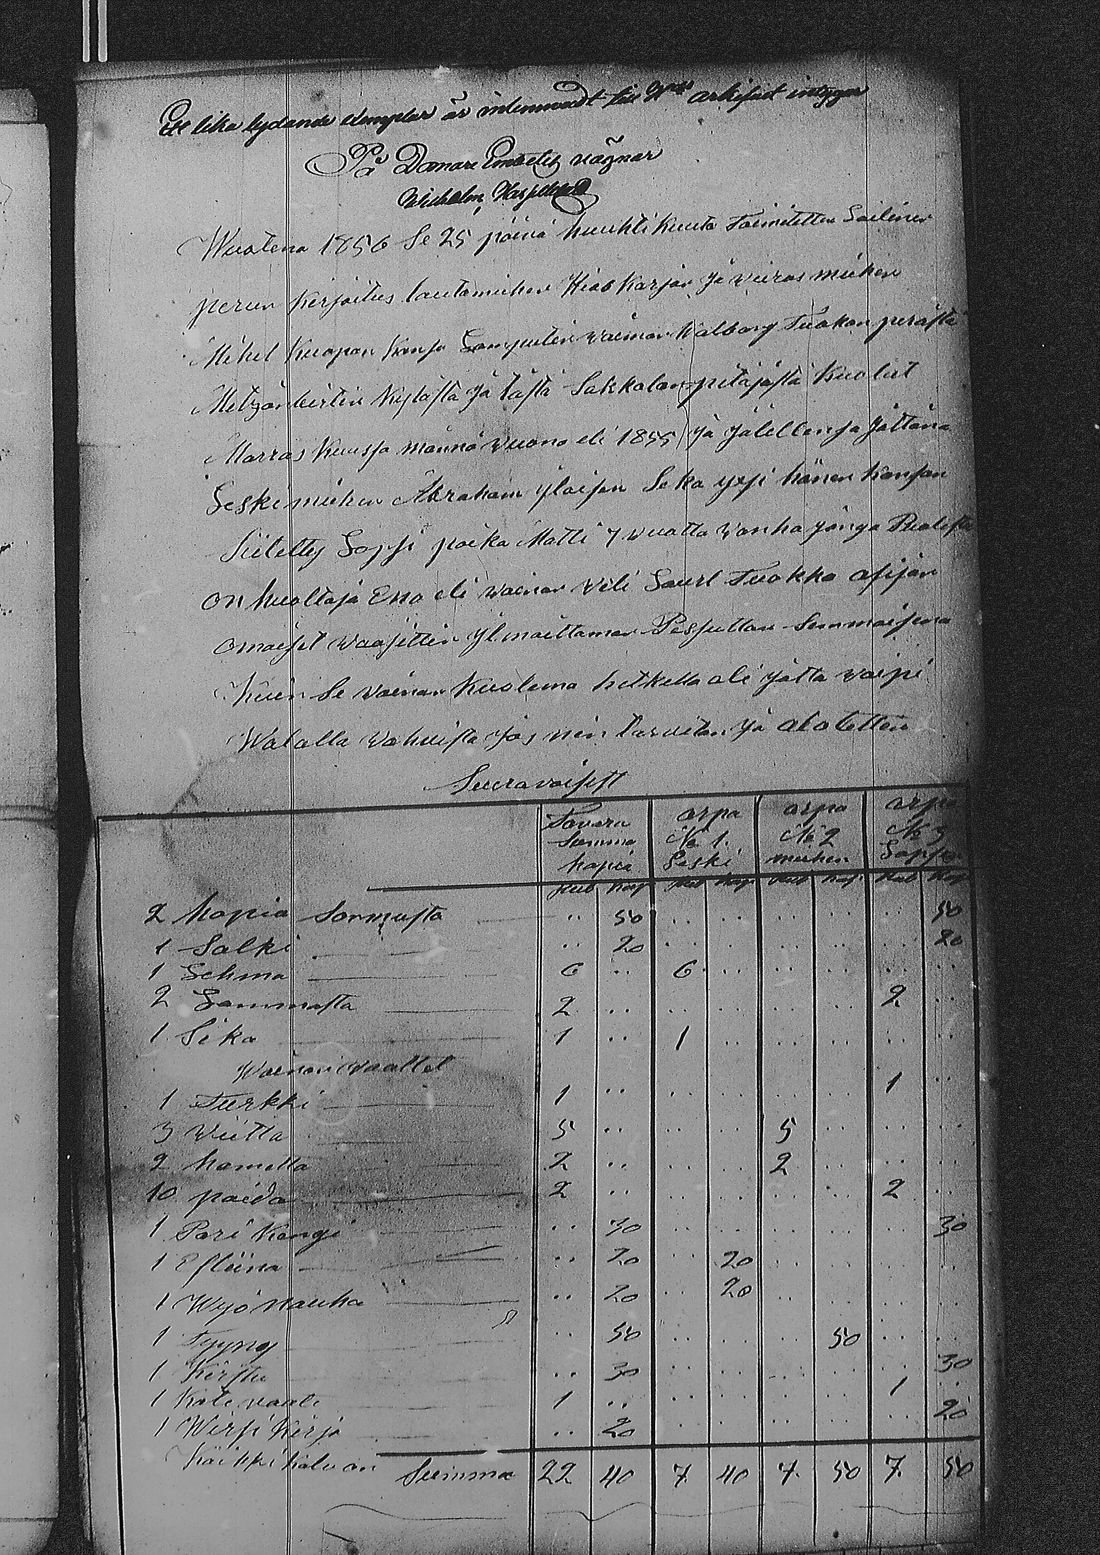 Ett lika lydande exemplar är inlemnadt till arkifvet intygar
På Domare Embetets vägnar
Wilhelm
Wuotena 1856 Se 25 päivä huuhti Kuuta Toimitettin Sailinen
perun Kirjoitus lautamiehen Hiob Karjan Ja vieras miehen
Mihel Kuapan Kansa Sampulin vaimon Walborg Tuokon perästä
Metzänbirtin Kylästä Ja tästä Sakkolan pitäjästä Kuolut
Marras Kuusja männä vuona eli 1855 Ja Jälellensa Jättänä
Leski miehen Abraham yläisen Seka yxsi hänen Kansan
Siitetty Lapsi poika Matti 7 vuotta vanha Jonga
on huoltaja Eno eli vaimon Veli Saul Tuokko asijan
omaiset vaasittin Ylmoittaman Pesputtan Semmoisena
Kuin Se vaimon Kuolema hetkellä oli Jota voipi
Walalla vahvista Jos nin tarvitan Ja alotettin
Seuravaisest
Tavara Somma hopia
arpa № 1. Leski
arpa № 2 miehen
arpa № 3 Lapsen
Rub Kop Rub Kop Rub Kop Rub Kop
2 hopia Sormusta .. 50 .. .. .. .. .. 50
1 Solki .. 20 .. .. .. .. .. 20
1 Lehmä 6 .. 6 .. .. .. .. ..
2 Lammasta 2 .. .. .. .. .. 2 ..
1 Sika 1 .. 1 .. .. .. .. ..
Waimon vaattet
1 Turkki 1 .. .. .. .. .. 1 ..
3 Viitta 5 .. .. .. 5 .. .. ..
2 hametta 2 .. .. .. 2 .. .. ..
10 paida 2 .. .. .. .. .. 2 ..
1 Pari Kengi .. 30 .. .. .. .. .. 30
1 Esliina .. 20 .. 20 .. .. .. ..
1 Wyö nauha .. 20 .. 20 .. .. .. ..
1 Tyyny .. 50 .. .. .. 50 .. ..
1 Kirstu .. 30 .. .. .. .. .. 30
1 Koti vaali 1 .. .. .. .. .. 1 ..
1 Wirsi Kirja .. 20 .. .. .. .. .. 20
Kaikki kaluon Summa 22 40 7. 40 7. 50 7. 50